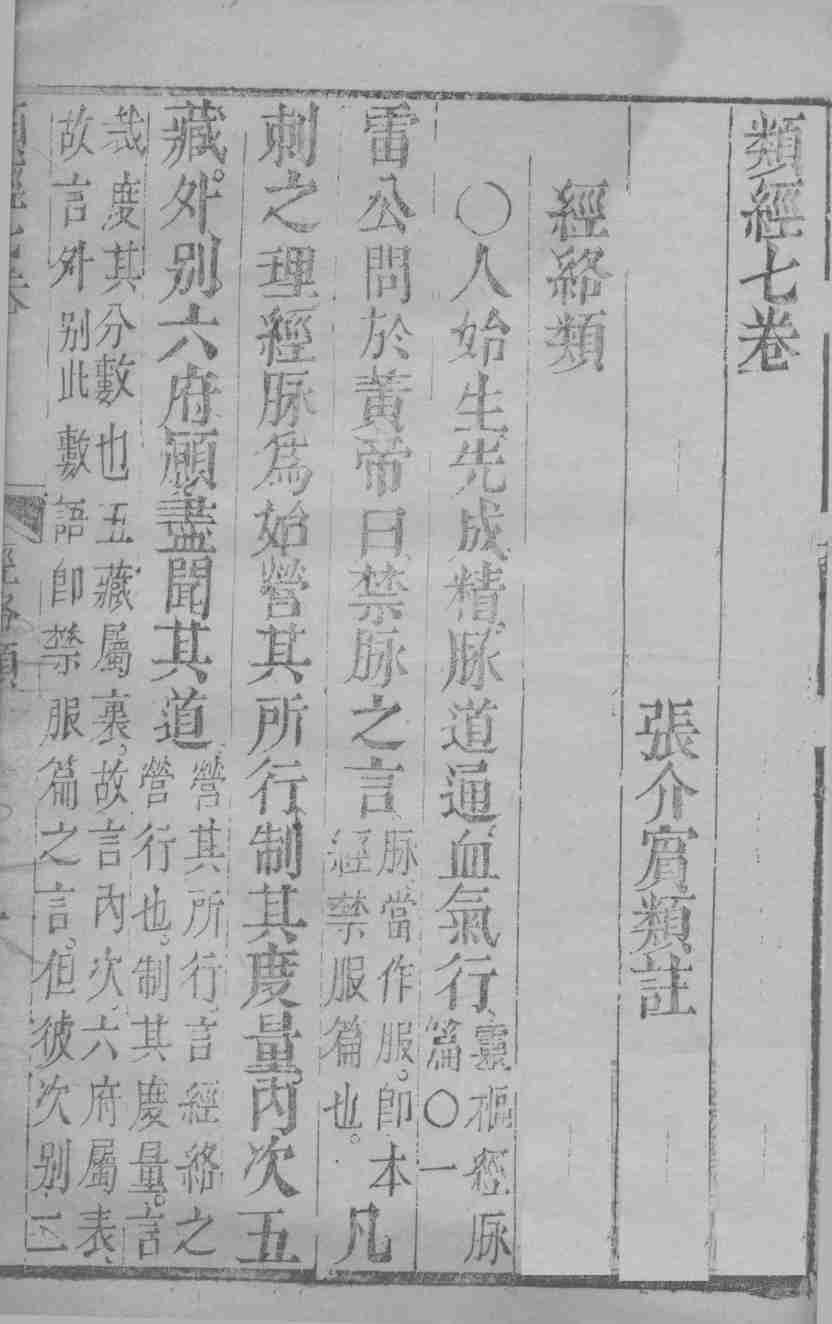 類經七卷
張介賓類註
經絡類
○人始生先成精脉道通血氣行靈樞經脉篇○一
雷公問於黃帝曰禁脉之言脉當作服。即本經禁服篇也。凡
刺之理經脉爲始營其所行制其度量內次五
藏外別六府願盡聞其道營其所行。言經絡之營行也。制其度量。言
裁度其分數也五藏屬裏。故言內次。六府屬表、故言外別此數語即禁服篇之言。但彼次別二
經絡類